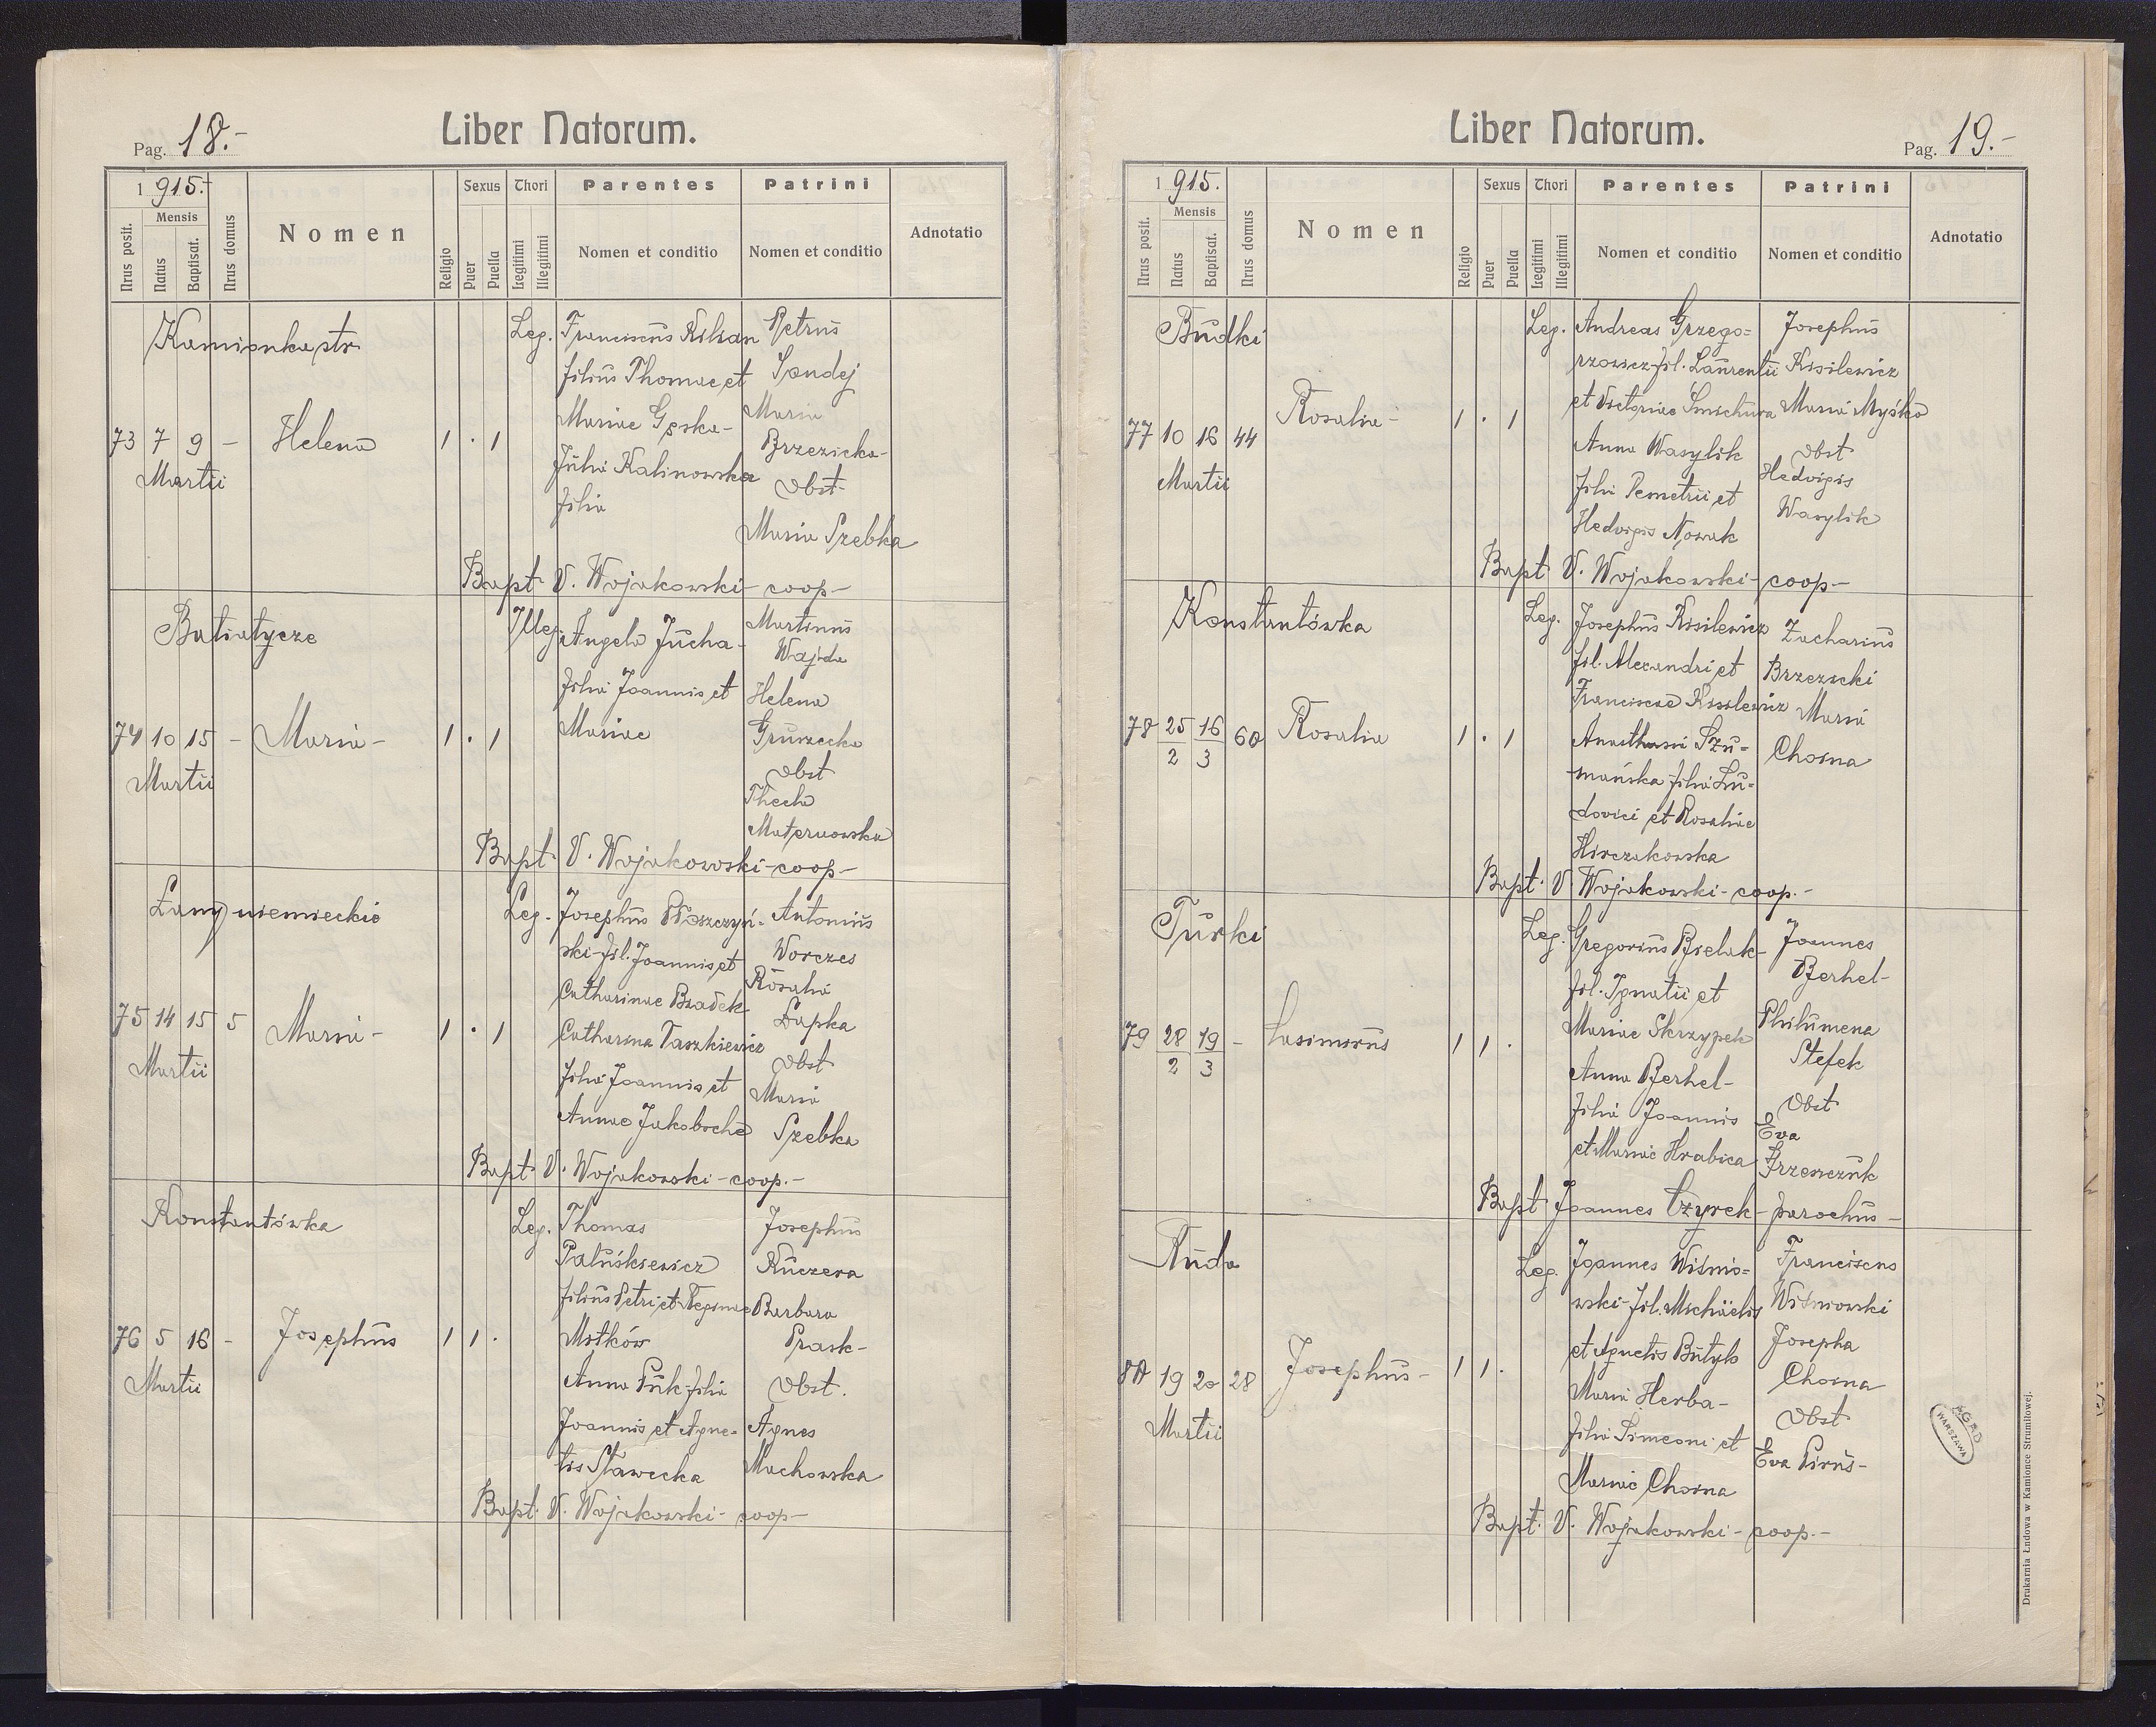 Pag. 18.-
Liber Natorum.
1915.-
Nrus posit.
Mensis
Natus
Baptisat.
Nrus domus
Nomen
Religio
Sexus
Puer
Puella
Thori
Legitimi
Illegitimi
Parentes
Nomen et conditio
Patrini
Nomen et conditio
Adnotatio
Kamionka str
73 7 9 -
Martii
Helena
1 . 1
Leg.
Franciscus Kilian
filius Thomae et
Mariae Gęska-
Julia Kalinowska
filia
Petrus
Sondej
Maria
Brzezicka-
Obst-
Maria Szebka
Bapt V. Wojakowski - coop-
Batiatycze
74 10 15 -
Martii
Maria-
1 . 1
Illeg.
Angela Jucha-
filia Joannis et
Mariae
Martinus
Wajda
Helena
Gruszecka
Obst
Thecla
Maternowska
Bapt V. Wojakowski - coop-
Łany niemieckie
75 14 15 5
Martii
Maria-
1 . 1
Leg.
Josephus Płoszczyń-
ski - fil. Joannis et
Catharinae Bzadek
Catharina Taszkiewicz
filia Joannis et
Annae Jakobsche
Antonius
Worczes
Rosalia
Łapka
Obst
Maria
Szebka
Bapt V. Wojakowski - coop.-
Konstantówka
76 5 16 -
Martii
Josephus
1 1 .
Leg.
Thomas
Patuśkiewicz
filius Petri et Reginae
Mitków
Anna Puk filia
Joannis et Agne-
tis Sławecka
Josephus
Kuczera
Barbara
Prask-
Obst.
Agnes
Machowska
Bapt. V. Wojakowski - coop-
Liber Natorum.
Pag. 19.-
1915.
Nrus posit.
Mensis
Natus
Baptisat.
Nrus domus
Nomen
Religio
Sexus
Puer
Puella
Thori
Legitimi
Illegitimi
Parentes
Nomen et conditio
Patrini
Nomen et conditio
Adnotatio
Budki
77 10 16 44
Martii
Rosalia-
1 . 1
Leg.
Andreas Grzego-
rzowicz fil. Laurentii
et Victoriae Smichura
Anna Wasylik
filia Demetrii et
Hedvigis Nowak
Josephus
Kisilewicz
Maria Myśko
Obst
Hedvigis
Wasylik
Bapt V. Wojakowski - coop-
Konstantówka
78 25/2 16/3 60
Rosalia
1 . 1
Leg.
Josephus Kisilewicz
fil. Alexandri et
Franciscae Kisilewicz
Anasthasia Szu-
mańska filia Lu-
dovici et Rosaliae
Hirczakowska
Zacharius
Brzezicki
Maria
Choina
Bapt. V Wojakowski - coop.-
Turki
79 28/2 19/3 -
Casimirus
1 1 .
Leg.
Gregorius Bielak-
fil. Ignatii et
Mariae Skrzypek
Anna Berhel-
filia Joannis
et Mariae Hrabica
Joannes
Berhel-
Philumena
Stefek
Obst
Eva
Grzeszczuk
Bapt Joannes Czyrek - parochus-
Ruda
80 19 20 28
Martii
Josephus-
1 1 .
Leg.
Joannes Wiśnio-
wski - fil. Michäelis
et Agnetis Butyło
Maria Herba-
filia Simeoni et
Mariae Choina
Franciscus
Wiśniowski
Josepha
Choina
Obst
Eva Pirus-
Bapt. V. Wojakowski - coop.-
AGAD
WARSZAWA
Drukarnia Ludowa w Kamionce Strumiłowej.